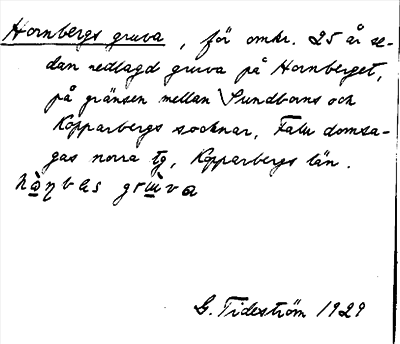 Hornbergs gruva, för omkr. 25 år se-
dan nedlagd gruva på Hornberget,
på gränsen mellan Sundborns och
Kopparbergs socknar, Falu domsa-
gas norra tg, Kopparbergs län.
G. Tideström 1929